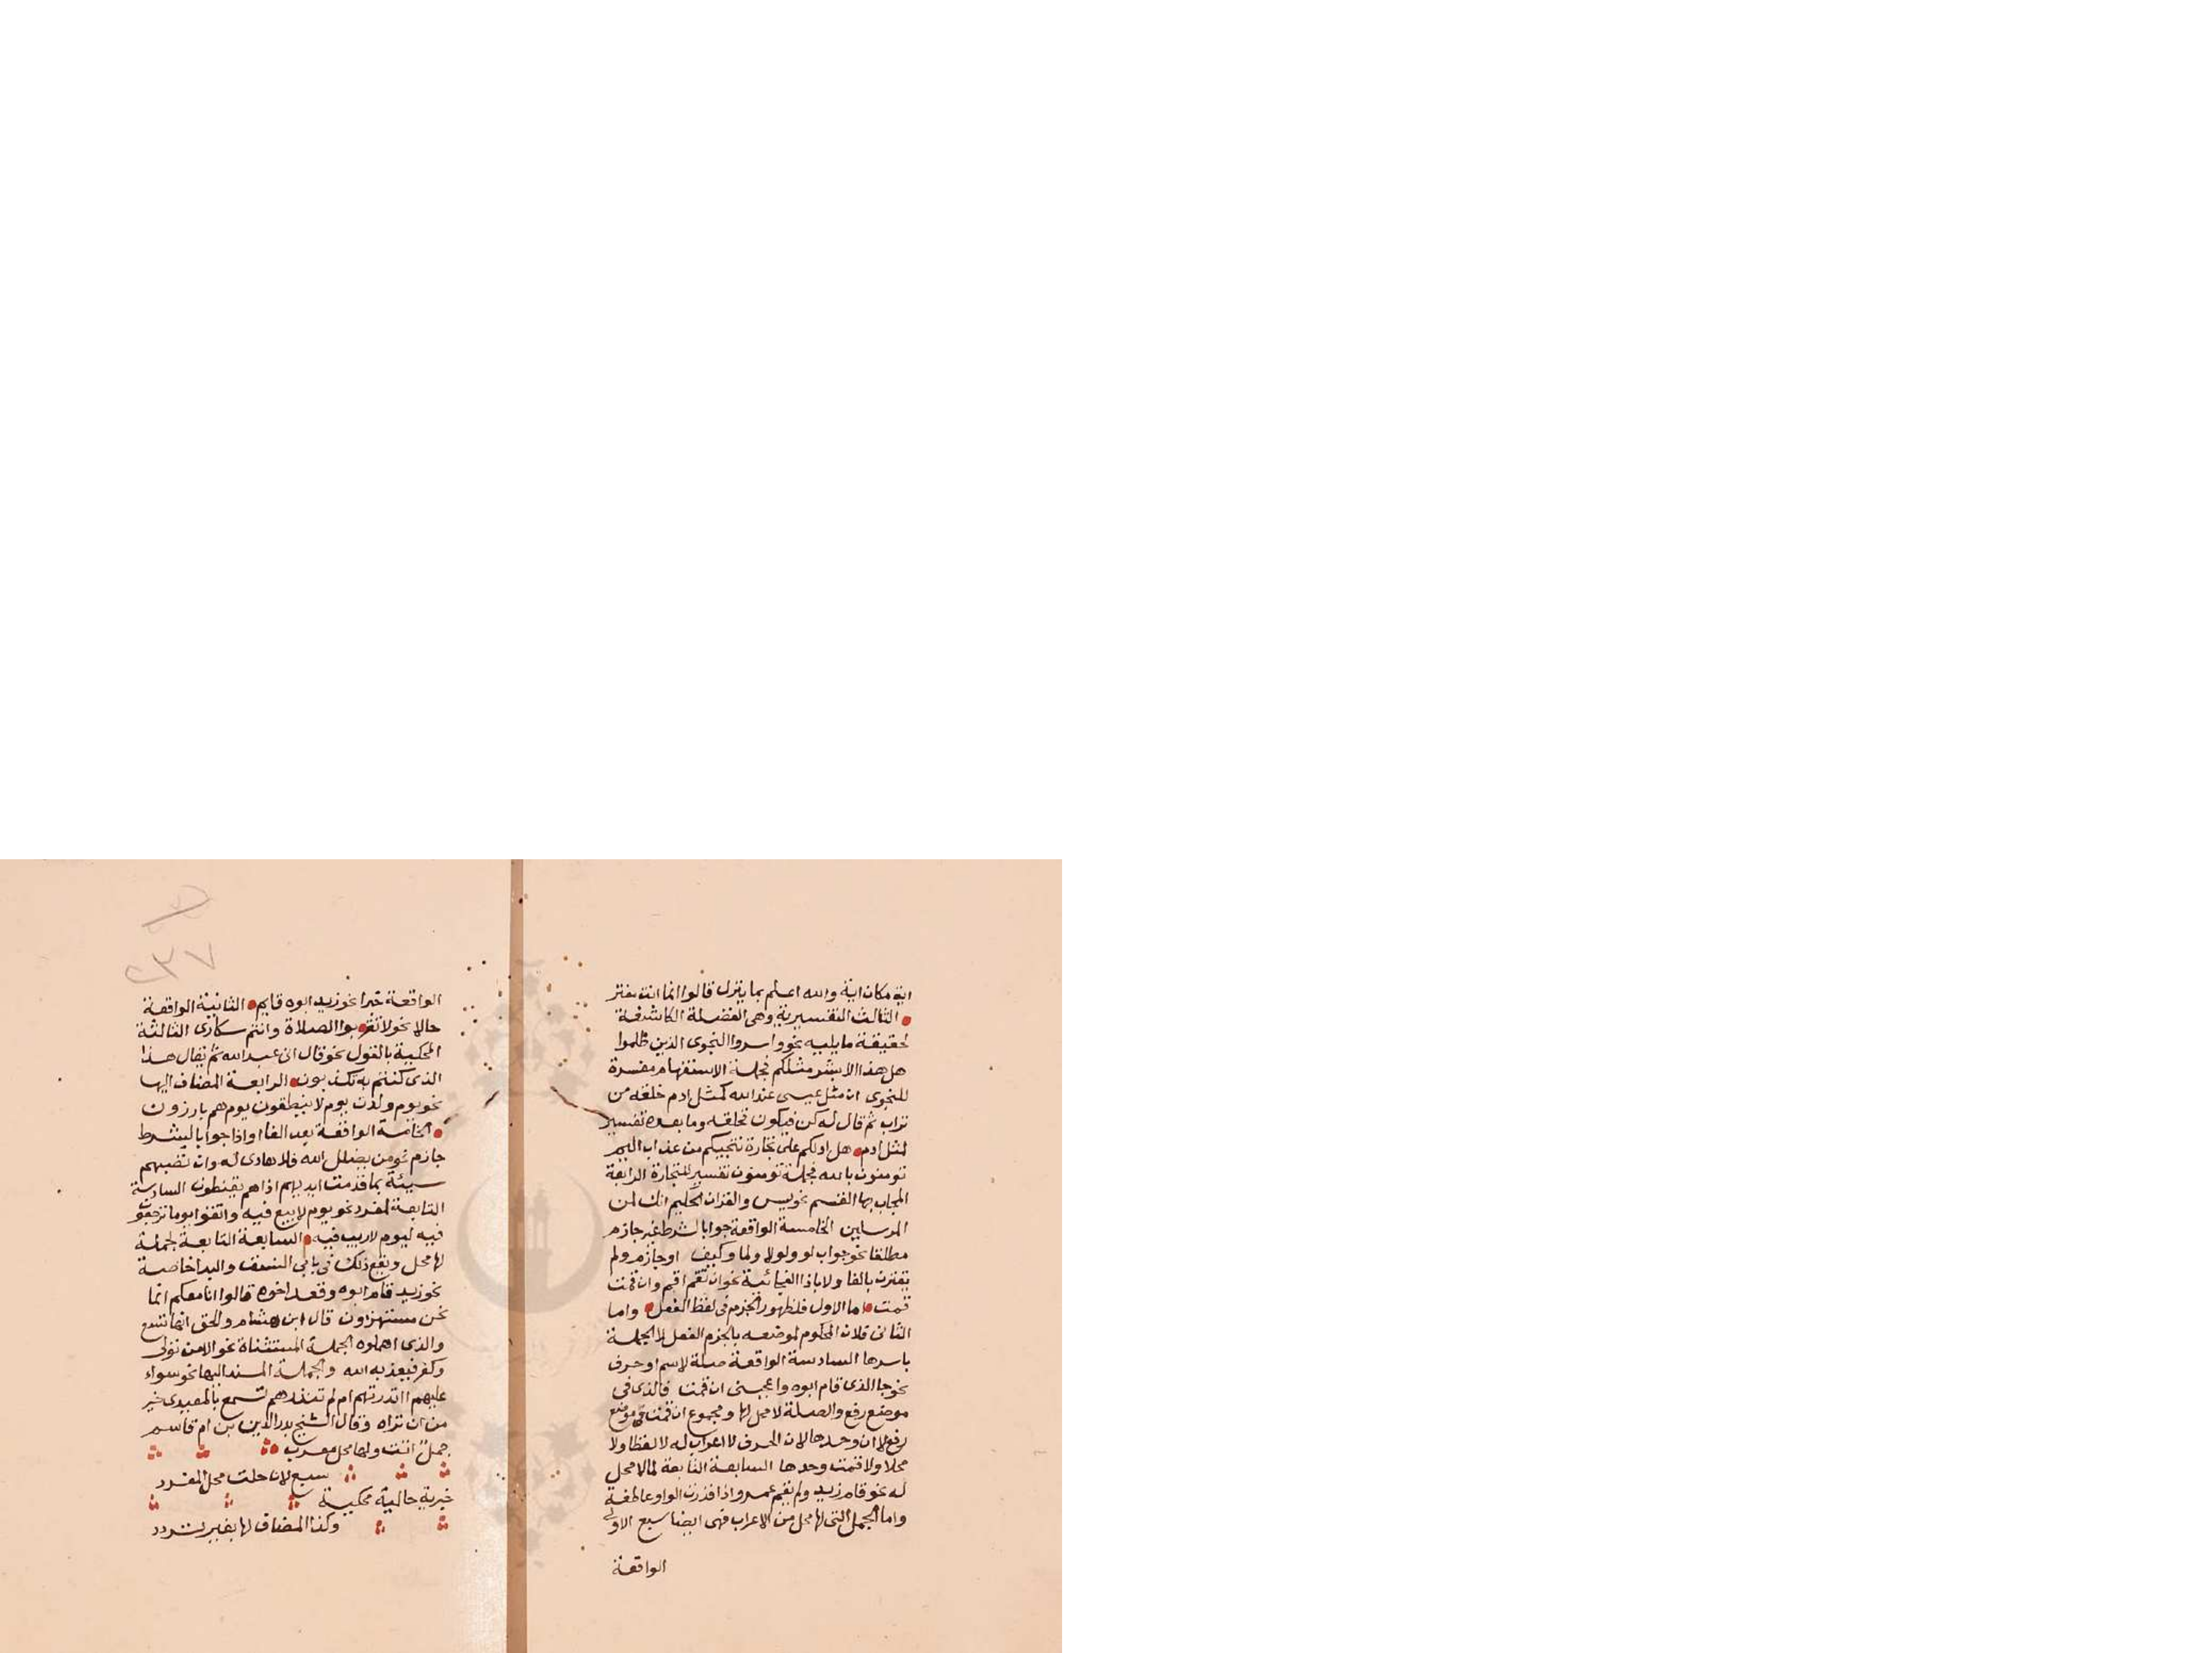 اية مكان اية والله اعلم بما ينزل قالوا انما انت مفتر
الثالث التفسيرية وهى الفضلة الكاشفة
لحقيقة ما يليه نحو واسروا النجوى الذين ظلموا
هل هذا الا بشر مثلكم فجملة الاستفهام مفسرة
للنجوى ان مثل عيسى عند الله كمثل ادم خلقه من
تراب ثم قال له كن فيكون فخلقه وما بعده تفسير
لمثل ادم هل ادلكم على تجارة تنجيكم من عذاب اليم
تومنون بالله فجملة تومنون تفسير للتجارة الرابعة
المجاب بها القسم نحو يس والقران الحكيم انك لمن
المرسلين الخامسة الواقعة جوابا لشرط غير جازم
مطلقا نحو جواب لو ولولا ولما وكيف اوجازم ولم
يقترن بالفا ولا باذا الفجائية نحو ان تقم اقم وان قمت
قمت اما الاول فلظهور الجزم فى لفظ الفعل واما
الثانى فلان المحكوم لموضعه بالجزم الفعل لا الجملة
باسرها السادسة الواقعة صلة لاسم اوحرف
نحو جا الذى قام ابوه واعجبنى ان قمت فالذى فى
موضع رفع والصلة لا محل لها ومجموع ان قمت فى موضع
رفع لا ان وحدها لان الحرف لا اعراب له لا لفظا ولا
محلا ولا قمت وحدها السابعة التابعة لما لا محل
له نحو قام زيد ولم يقم عمرو اذا قدرت الواو عاطفة
واما الجمل التى لها محل من الاعراب فهى ايضا سبع الاولى
الواقعة
٢٣٧
الواقعة خبرا نحو زيد ابوه قايم الثانية الواقعة
حالا نحو لا تقربوا الصلاة وانتم سكارى الثالثة
المحكية بالقول نحو قال انى عبد الله ثم يقال هذا
الذى كنتم به تكذبون الرابعة المضاف اليها
نحو يوم ولدت يوم لا ينطقون يوم هم بارزون
الخامسة الواقعة بعد الفا او اذا جوابا لشرط
جازم نحو من يضلل الله فلا هادى له وان تصبهم
سيئة بما قدمت ايديهم اذا هم يقنطون السادسة
التابعة لمفرد نحو يوم لا بيع فيه واتقوا يوما ترجعون
فيه ليوم لا ريب فيه السابعة التابعة لجملة
لها محل ويقع ذلك فى بابى النسق والبدل خاصة
نحو زيد قام ابوه وقعد اخوه قالوا انا معكم انما
نحن مستهزاون قال ابن هشام والحق انها تسع
والذى اهملوه الجملة المستثناة نحو الا من تولى
وكفر فيعذبه الله والجملة المسند اليها نحو سواء
عليهم اانذرتهم ام لم تنذرهم تسمع بالمعيدى خير
من ان تراه وقال الشيخ بدر الدين بن ام قاسم
جمل اتت ولها محل معرب
سبع لان حلت محل المفرد
خبرية حالية محكية
وكذا المضاف لها بغير تردد